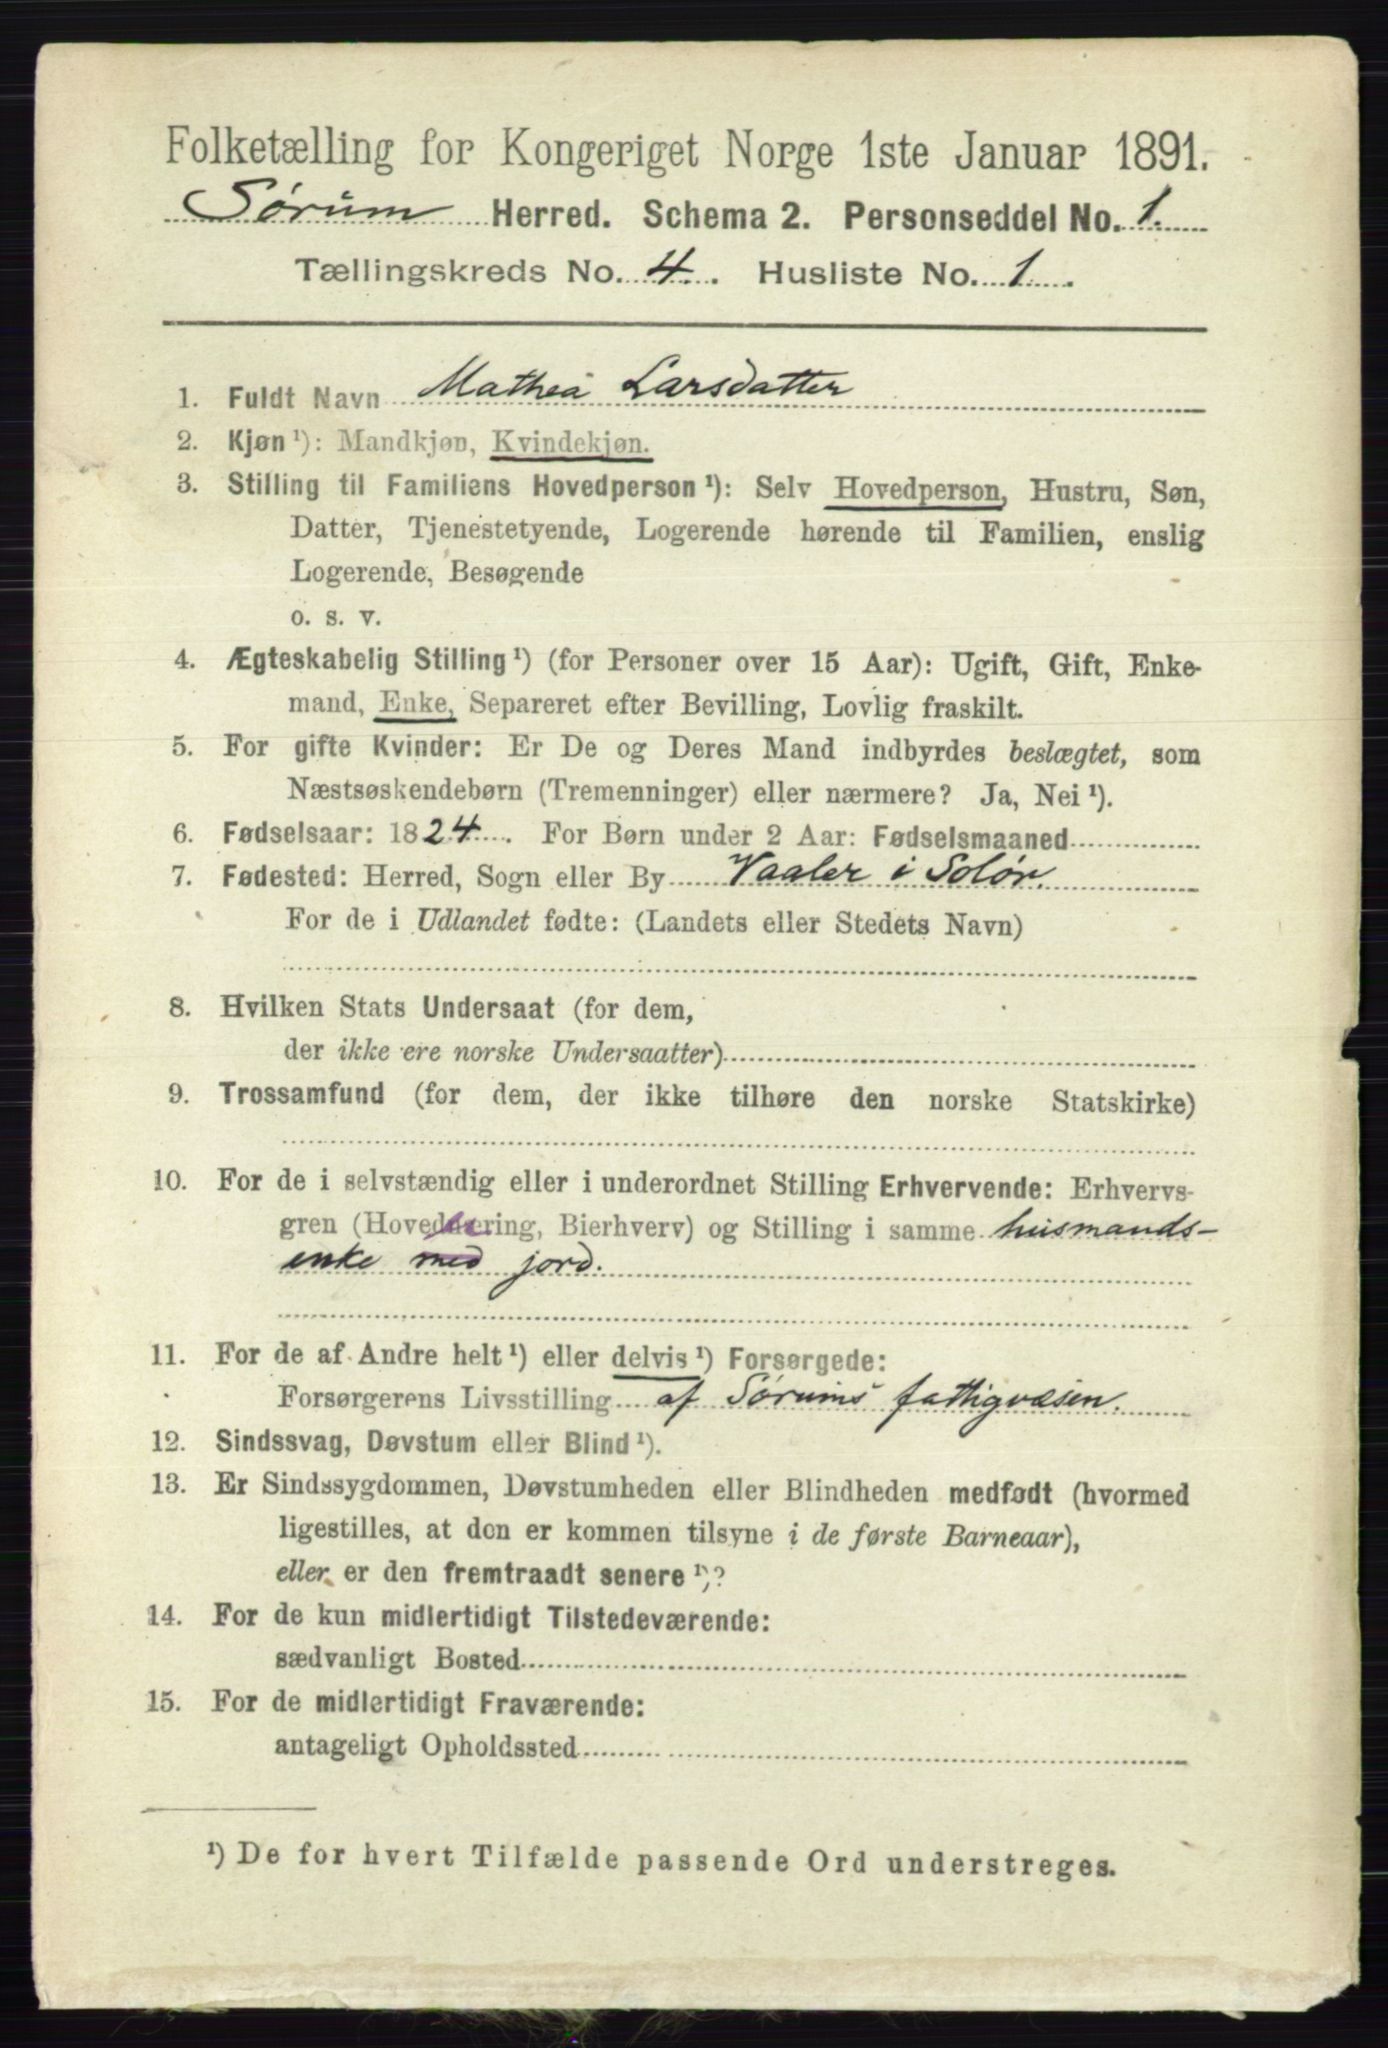 Folketælling for Kongeriget Norge 1ste Januar 1891.
Sørum Herred. Schema 2. Personseddel No. 1.
Tællingskreds No. 4. Husliste No. 1.
1. Fuldt Navn Mathea Larsdatter
2. Kjøn ¹): Mandkjøn, Kvindekjøn.
3. Stilling til Familiens Hovedperson ¹): Selv Hovedperson, Hustru, Søn,
Datter, Tjenestetyende, Logerende hørende til Familien, enslig
Logerende, Besøgende
o. s. v.
4. Ægteskabelig Stilling ¹) (for Personer over 15 Aar): Ugift, Gift, Enke-
mand, Enke, Separeret efter Bevilling, Lovlig fraskilt.
5. For gifte Kvinder: Er De og Deres Mand indbyrdes beslægtet, som
Næstsøskendebørn (Tremenninger) eller nærmere? Ja, Nei ¹).
6. Fødselsaar: 1824. For Børn under 2 Aar: Fødselsmaaned
7. Fødested: Herred, Sogn eller By Vaaler i Solør.
For de i Udlandet fødte: (Landets eller Stedets Navn)
8. Hvilken Stats Undersaat (for dem,
der ikke ere norske Undersaatter)
9. Trossamfund (for dem, der ikke tilhøre den norske Statskirke)
10. For de i selvstændig eller i underordnet Stilling Erhvervende: Erhvervs-
gren (Hovednæring, Bierhverv) og Stilling i samme husmands-
enke med jord.
11. For de af Andre helt ¹) eller delvis ¹) Forsørgede:
Forsørgerens Livsstilling af Sørums fattigvæsen.
12. Sindssvag, Døvstum eller Blind ¹).
13. Er Sindssygdommen, Døvstumheden eller Blindheden medfødt (hvormed
ligestilles, at den er kommen tilsyne i de første Barneaar),
eller er den fremtraadt senere ¹)?
14. For de kun midlertidigt Tilstedeværende:
sædvanligt Bosted
15. For de midlertidigt Fraværende:
antageligt Opholdssted
¹) De for hvert Tilfælde passende Ord understreges.